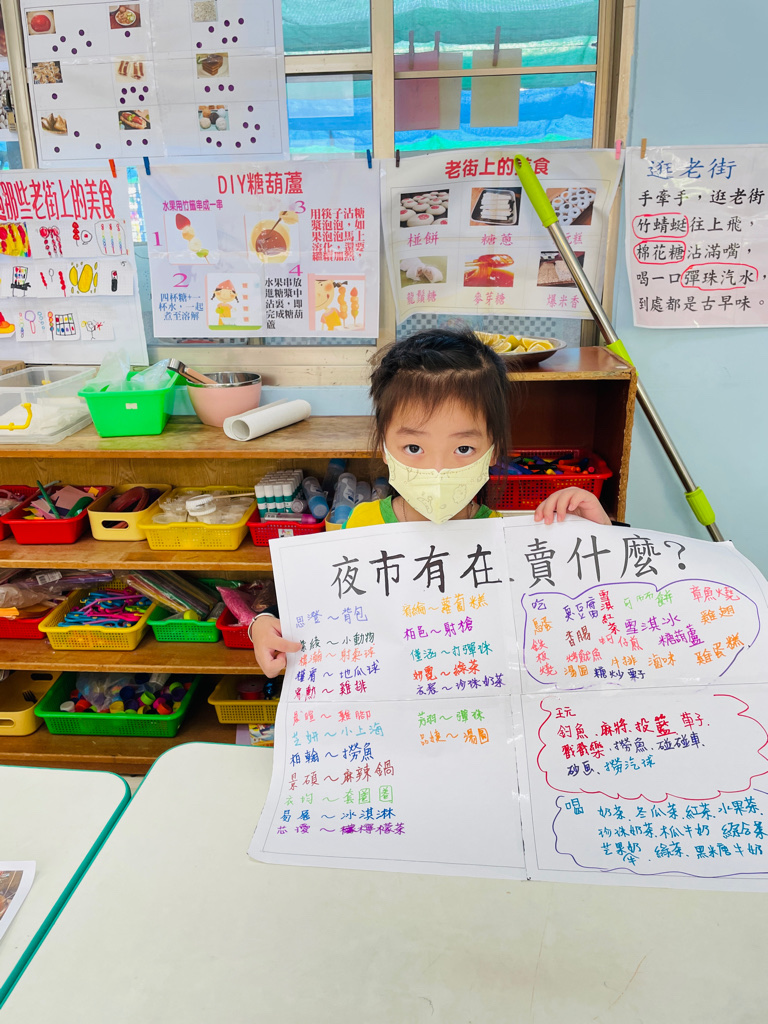 那些老街上的美食
DIY糖葫蘆
水果用竹籤串成一串
1
2
四杯糖+一杯水,一起煮至溶解
3
糖如上要沾漿
4
水果串放進糖漿中沾裹,即完成糖葫蘆
老街上的美食
椪餅
糖蔥
糕
龍鬚糖
麥芽糖
爆米香
逛老街
手牽手,逛老街
竹蜻蜓往上飛,
棉花糖沾滿嘴,
喝一口彈珠汽水,
到處都是古早味。
夜市有在賣什麼?
思澄~背包
~小動物
~射氣球
~地瓜球
~雞排
~雞腳
芝妍~小上海
柏翰~撈魚
景碩~麻辣鍋
~套圈圈
易展~冰淇淋
芯瀅~檸檬茶
~蘿蔔糕
柏邑~射槍
~打彈珠
~綠茶
~珍珠奶茶
~彈珠
~湯圓
吃
臭豆腐
章魚燒
香腸
雪淇冰
雞翅
糖葫蘆
烤魷魚
蚵仔煎
湯圓
牛排
滷味
雞蛋糕
糖炒栗子
鐵板燒
紅茶
玩
釣魚、麻將、投籃
戳戳樂、撈魚、碰碰車、
砂畫、撈汽球
喝
奶茶、冬瓜茶、紅茶、水果茶、
珍珠奶茶、木瓜牛奶、綜合茶
芒果牛奶、綠茶、黑糖牛奶